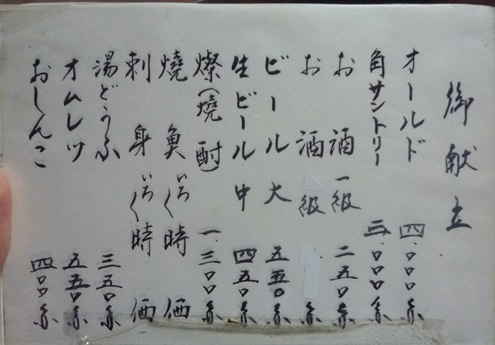 御献立
オールド 四.〇〇〇円
角サントリー 三.〇〇〇円
お酒 一級 二五〇円
お酒 級 円
ビール大 五五〇円
生ビール中 四五〇円
燦(燒酎) 一.三〇〇円
燒魚いろ〱時価
刺身いろ〱時価
湯どうふ 三五〇円
オムレツ 五五〇円
おしんこ 四〇〇円